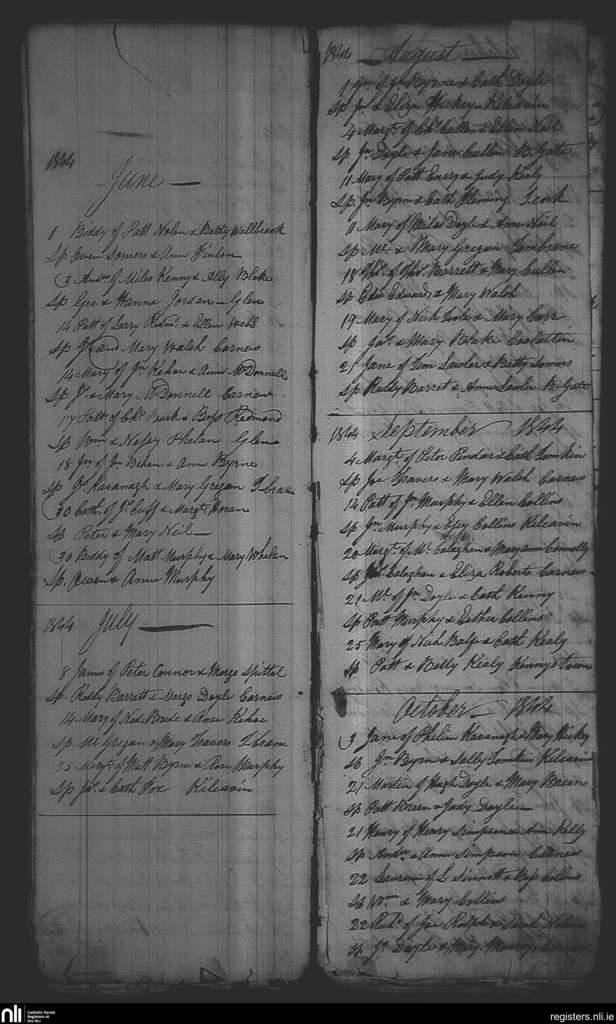 1844
June —
1 Biddy of Patt Nolan & Betty Wallbrook
Sp Owen Somers & Ann Kinlen
3 Andw of Miles Kenny & Ally Blake
Sp Geo & Hanna Jordan — Glen
14 Patt of Larry Redmd & Ellen Webb
Sp Jn and Mary Walsh Carnew
14 Mary of Jn Kehoe & Anne McDonnell
Sp Js & Mary McDonnell Carnew
17 of Chs Burk & Bess Redmond
Sp Wm & Nessy Phelan Glens
18 Jn of Jn Behan & Ann Byrne
Sp Js Kavanagh & Mary Gregan
30 Cath of Js Cuff & Margt Horan
Sp Peter & Mary Neil —
30 Biddy of Matt Murphy & Mary Whelan
Sp Owen & Anne Murphy
1844 July —
8 James of Peter Connor & Margt Spittal
Sp Roddy Barrett & Margt Doyle Carnew
14 Mary of Ned Bride & Rose Kehoe
Sp Ml Gregan & Mary Travers
25 Margt of Matt Byrn & Rose Murphy
Sp Jas & Cath Fox Kilcavin
1844 — August —
1 Jn of Js Byrne & Cath Doyle
Sp Jn & Eliza Hickey Kilcavin
4 Margt of Chs Cullen & Ellen Neil
Sp Jn Doyle & Jane Cullen B. Gate
11 Mary of Patt & Judy Kealy
Sp Jn Byrn & Cath Fleming
11 Mary of Miles Doyle & Ann Neil
Sp Ml & Mary Gregan
18 of Barrett & Mary Cullen
Sp Edw Edwards & Mary Walsh
19 Mary of Nick Toole & Mary Carr
Sp Jas & Mary Blake
21 Jane of Tim Lawler & Betty Somers
Sp Roddy Barret & Ann Lawler B. Gate
1844 September 1844
4 Margt of Peter Pender & Cath Tomkin
Sp Joe Travers & Mary Walsh Carnew
14 Patt of Jn Murphy & Ellen Collins
Sp Jn Murphy & Collins Kilcavin
20 Margt of Ml Calaghan & Maryann Connolly
Sp Calaghan & Eliza Roberts Carnew
21 Ml of Jn Doyle & Cath Kenny
Sp Patt Murphy & Esther Collins
25 Mary of Nick Balfe & Cath Kealy
Sp Patt & Betty Kealy Kennystown
October — 1844
3 Jane of Phelim Kavanagh & Mary Hickey
Sp Jn Byrn & Sally Tomkin Kilcavin
21 Martin of Hugh Doyle & Mary Breen
Sp Patt Breen & Judy Doyle
21 Henry of Henry Simpson & Ann Kelly
Sp Andw & Anne Simpson Carnew
22 of L Sinnott & Bess Collins
Sp Wm & Mary Collins
22 of Joe Ralph & Sarah Nolan
Sp Js Doyle & Mary Carnew
nli
Catholic Parish
Registers at
the NLI
registers.nli.ie